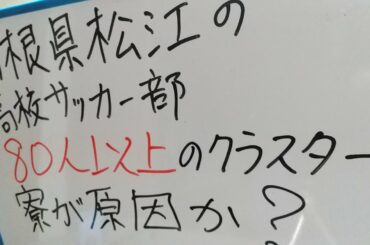 島根県松江の
高校サッカー部
80人以上のクラスター
寮が原因か?